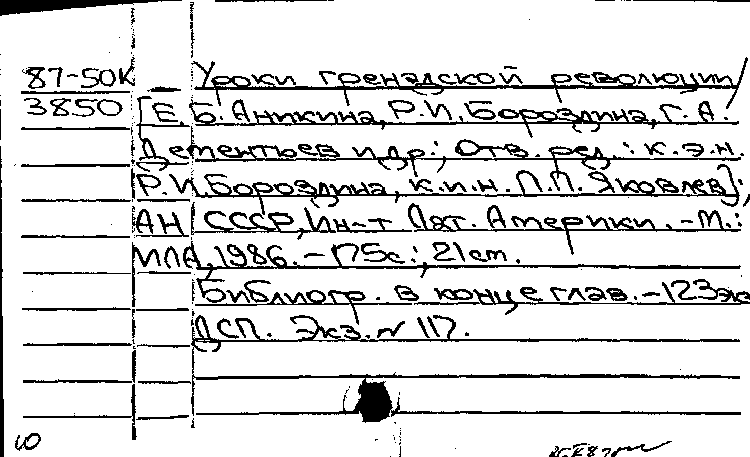 87-50К Уроки гренадской революции/
3850 [Е.Б. Аникина, Р.И. Бороздина, Г.А.
Дементьев и др.; Отв. ред.: к.э.н.
Р.И. Бороздина, к.и.н. П.П. Яковлев];
АН СССР, Ин-т Лат. Америки. -М.:
ИЛА, 1986. - 175с.; 21 cm.
Библиогр. в конце глав. - 123 экз
ДСП. Экз. № 117.